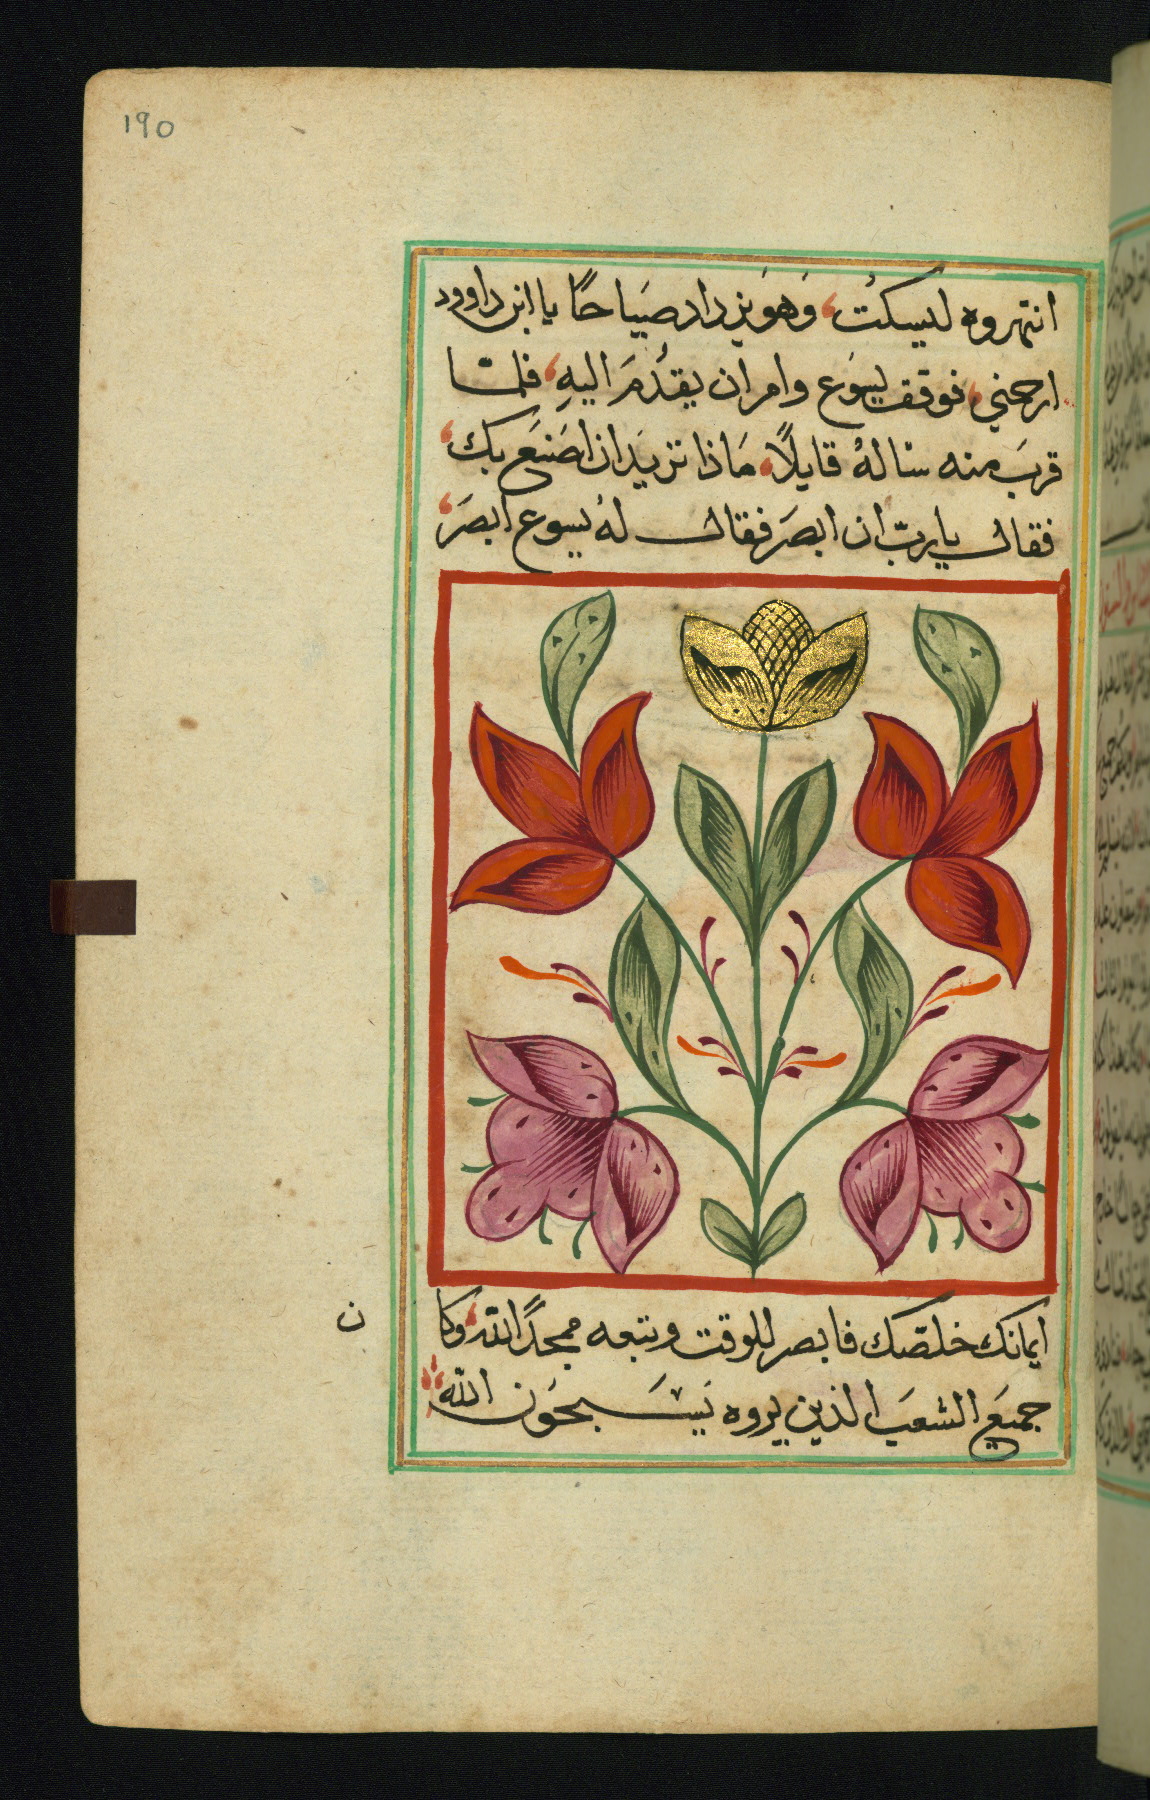 190
انتهروه ليسكتُ، وَهوَ يزداد صَياحًا يا ابن داوود
ارحمني، فوقف يسَوع وامر ان يقدُمَ اليهِ، فلمّا
قربَ منه سَالهُ قايلاً، مَاذا تريَد ان اصَنعَ بك،
فقال ياربّ ان ابصَر فقال لهُ يسوع ابصَر،
ايمانك خلصّك فابصر للوقت وتبعه ممجدًا الله، وكا
ن
جميَع الشعبَ الذين يروه يَسَبحَون الله